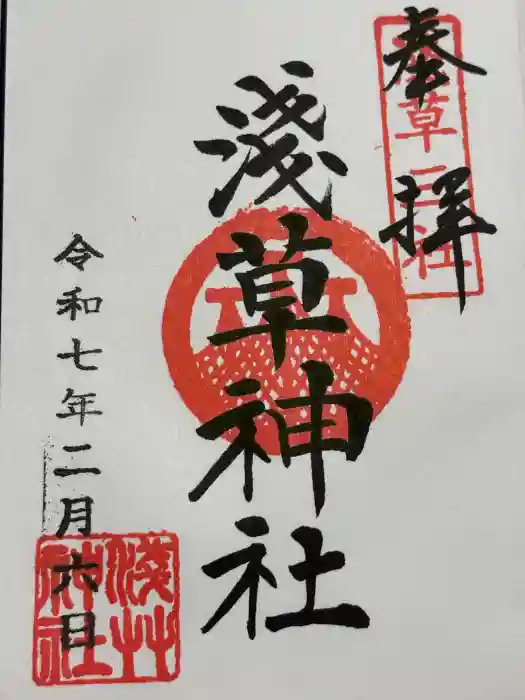 奉拝
淺草三社
淺草神社
令和七年二月六日
淺草神社